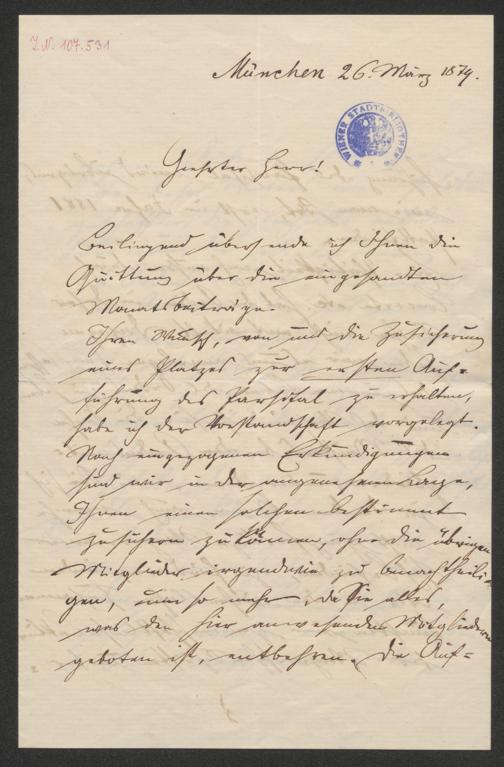 J.N. 107.531
München 26. März 1879.
WIENER STADTBIBLIOTHEK
Geehrter Herr!
Beiliegend übersende ich Ihnen die
Quittung über die eingesandten
Monatsbeiträge.
Ihren Wunsch, von uns die Zusicherung
eines Platzes zur ersten Auf-
führung des Parsifal zu erhalten,
habe ich der Vorstandschaft vorgelegt.
Nach eingezogenen Erkundigungen
sind wir in der angenehmen Lage,
Ihnen einen solchen bestimmt
zusichern zu können, ohne die übrigen
Mitglieder irgendwie zu benachtheili-
gen, um so mehr, da Sie alles,
was den hier anwesenden Mitgliedern
geboten ist, entbehren. Die Auf-